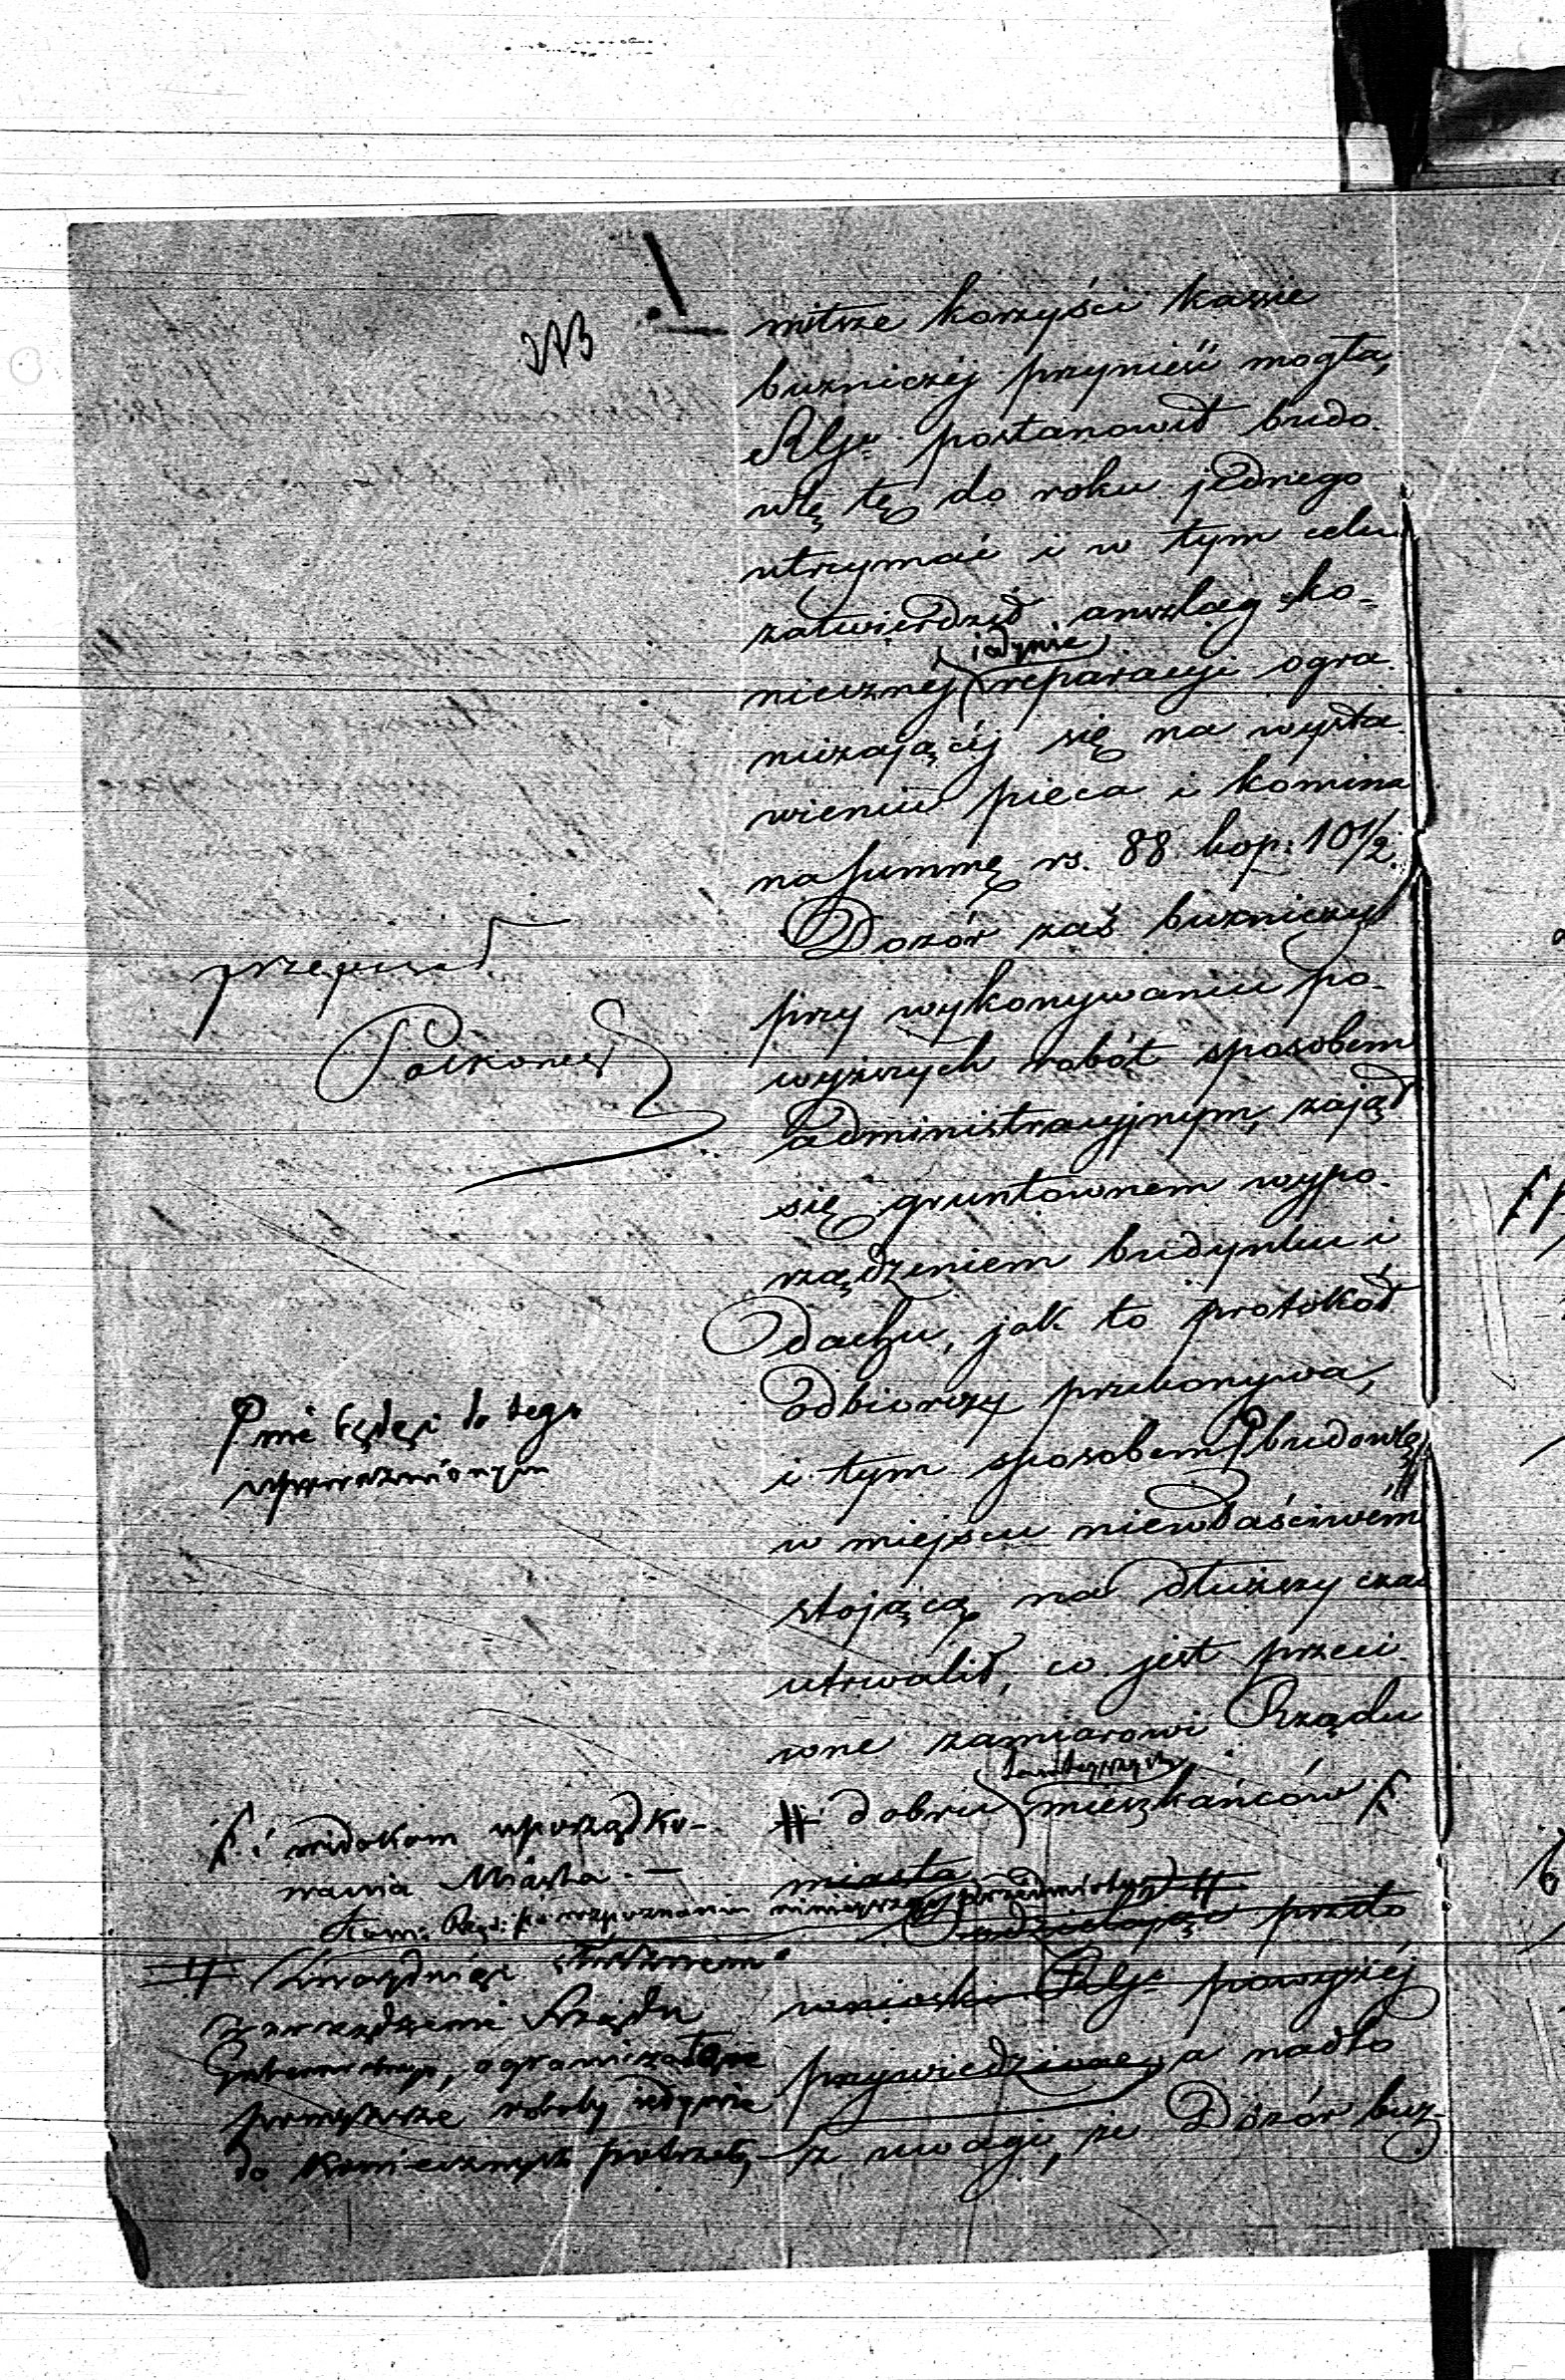 mitsze korzyści kassie
bużniczéj przynieść mogła,
RGu. postanowił budo-
wlę tę do roku jednego
utrzymać i w tym celu
zatwierdził anszlag ko-
iedynie
niecznéj reparacyi ogra-
niczającéj się na wysta
wieniu pieca i komina
na summę rs. 88 kop: 10½.
Dozór zaś bużniczy
przy wykonywaniu po-
wyższych robót sposobem
administracyjnym, zajął
się gruntownem wypo-
rządzeniem budynku i
dachu, jak to protokół
odbiorczy przekonywa,
i tym sposobem budowlę
w miejscu niewłaściwém
stojącą na dłuższy czas
utrwalił, co jest przeci-
wne zamiarowi Rządu
# dobru mieszkańców
miasta
podzielając przeto
wnioski powyżéj
przywiedzione, a nadto
z uwagi, że Dozór buż-
przepisał
nie będąc do tego
upoważnionym
i widokom uporządko-
wania Miasta. —
# Uwzględniając
zarządzenie Rządu
Gubernialnego, ograniczające
powyższe roboty iedynie
do koniecznych potrzeb,